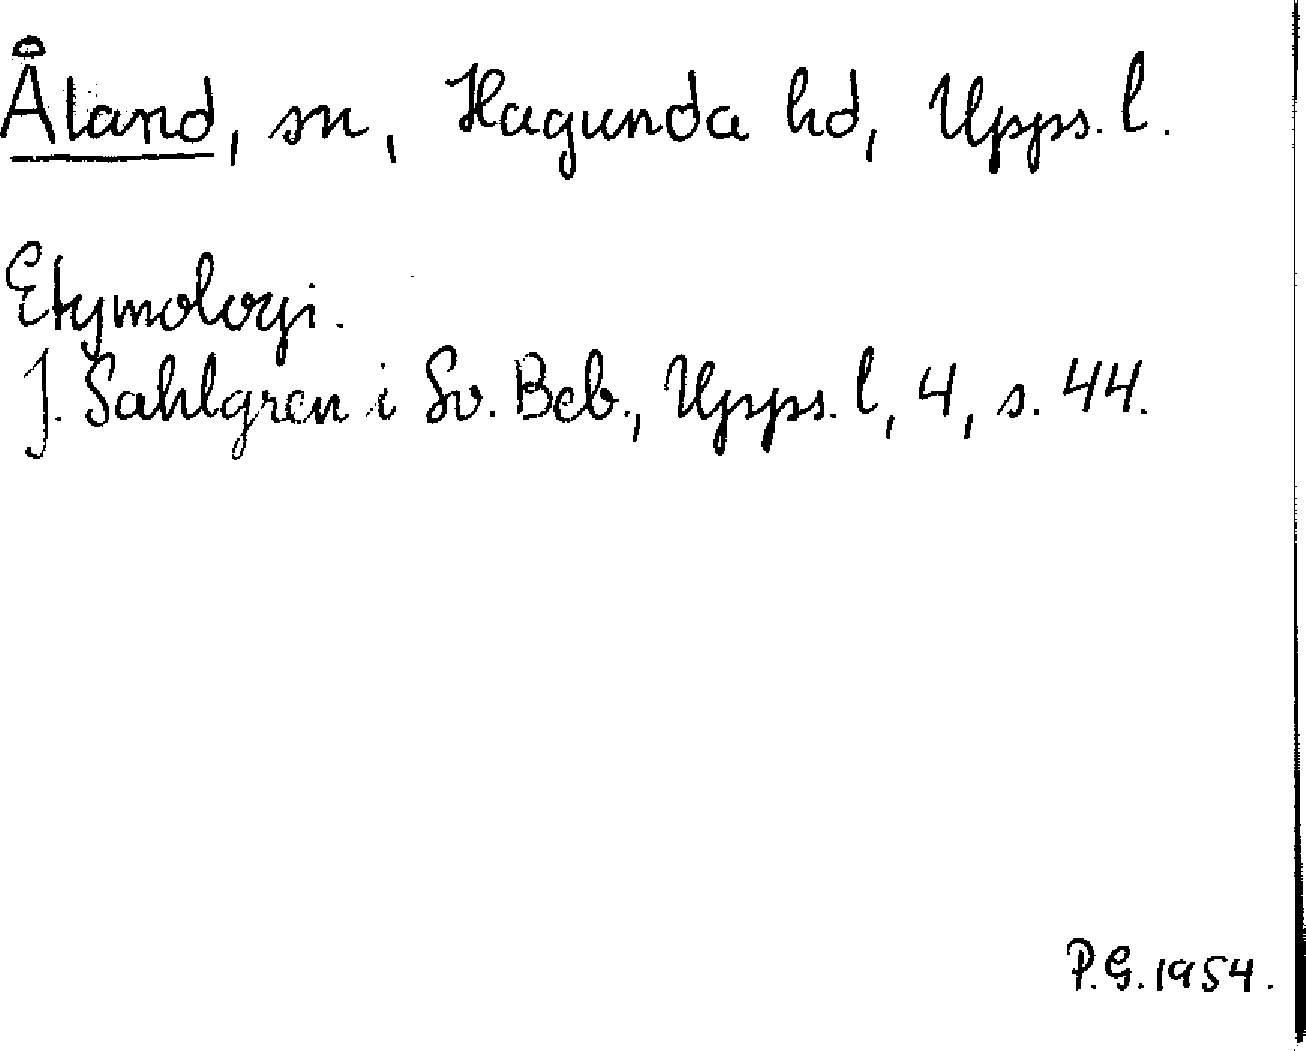 Åland, sn, Hagunda hd, Upps. l.
Etymologi.
J. Sahlgren i Sv. Beb., Upps. l, 4, s. 44.
P.G. 1954.